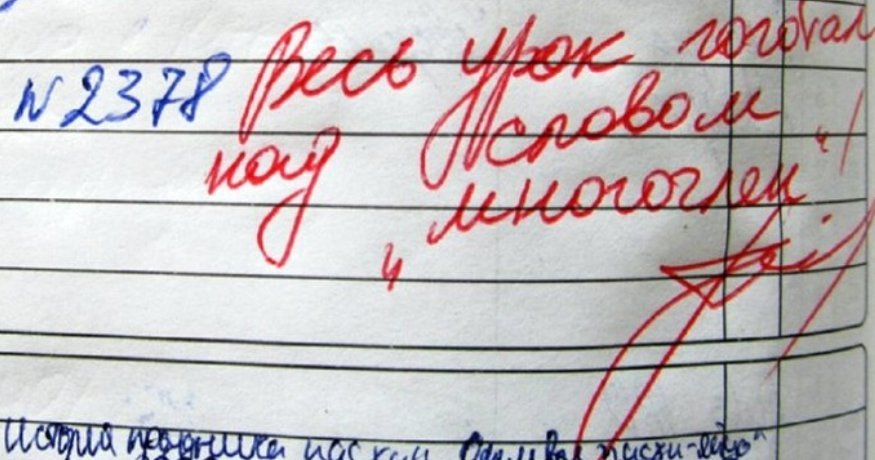 №2378 Весь урок гоготал
над словом
„многочлен“!
История праздника